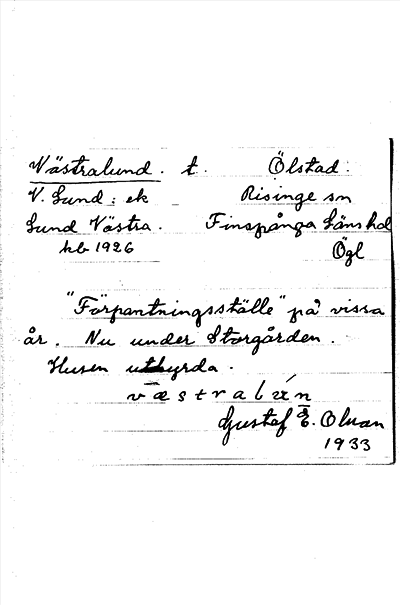 Västralund. t. Ölstad.
V. Lund: ek Risinge sn
Lund Västra. Finspånga Läns hd
kb 1926 Ögl
"Förpantningsställe" på vissa
år. Nu under Storgården.
Husen uthyrda.
Gustaf E. Olsson
1933